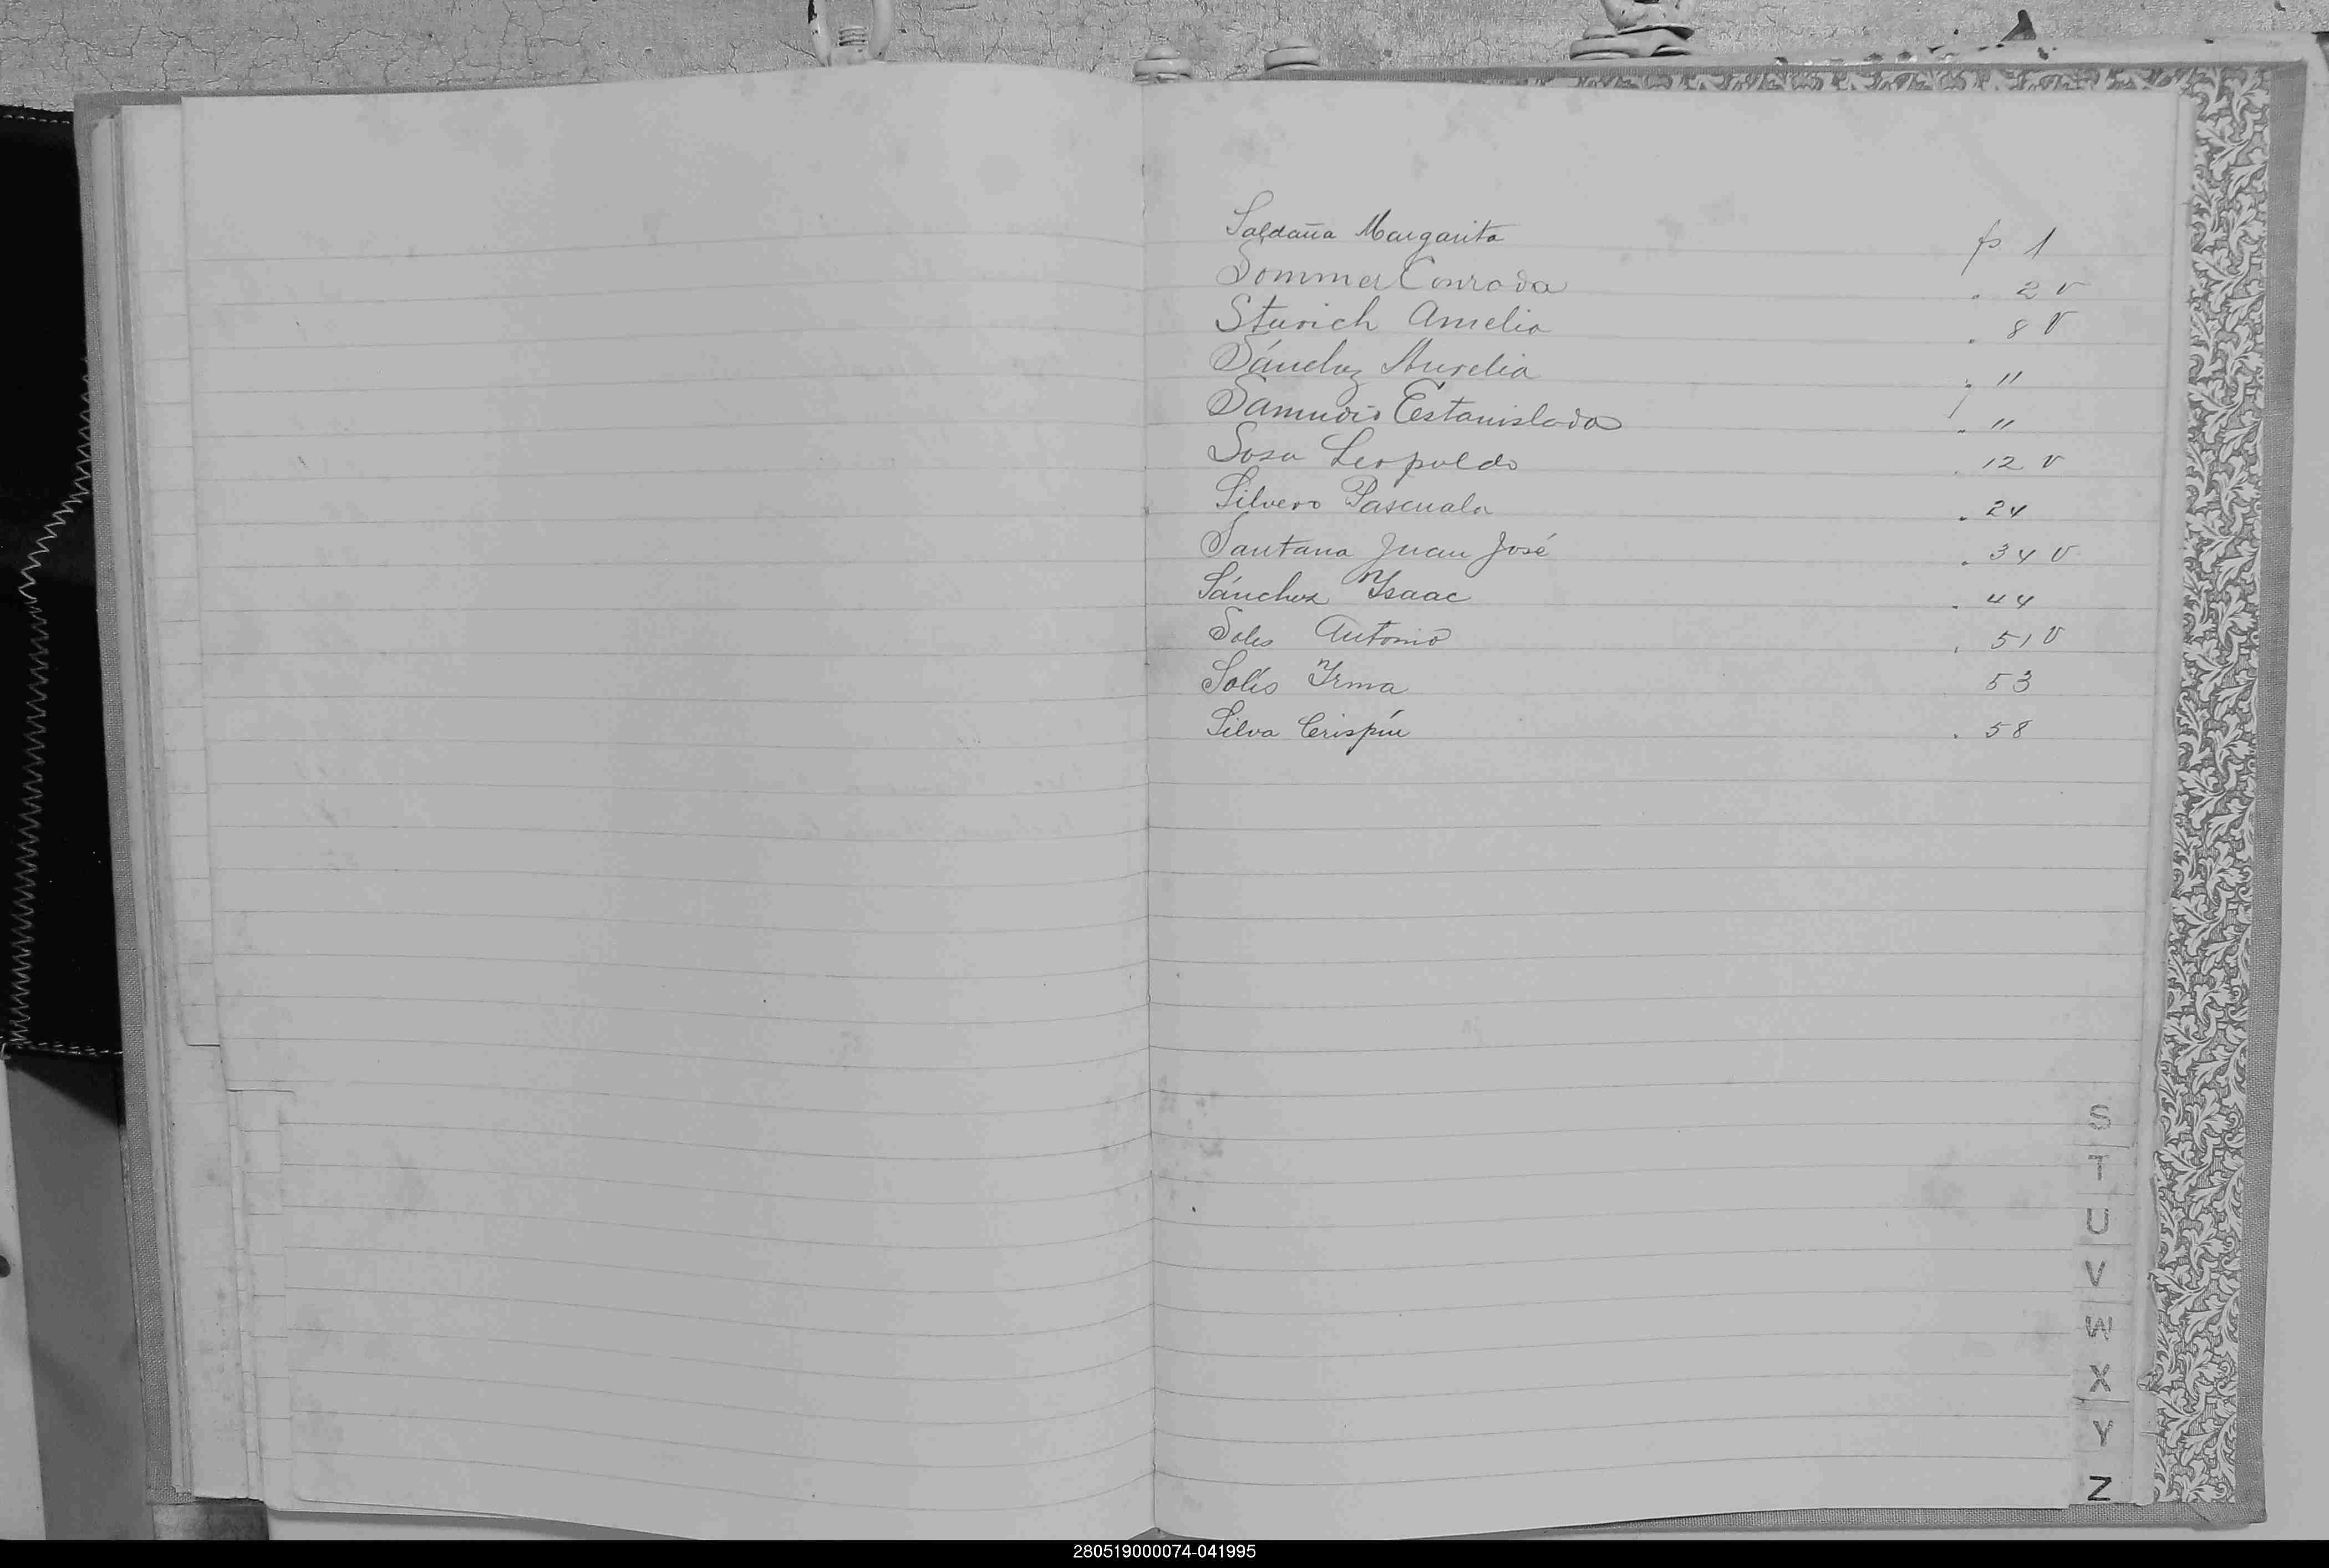 Saldaña Margarita fs 1
Sommer Conrada . 2 v
Sturich Amelia . 8 v
Sánchez Aurelia . "
Samudio Estanislada . "
Sosa Leopoldo . 12 v
Silvero Pascuala . 24
Santana Juan José . 34 v
Sánchez Ysaac . 44
Solis Antonio . 51 v
Solís Yrma 53
Silva Crispín . 58
S
T
U
V
W
X
Y
Z
280519000074-041995